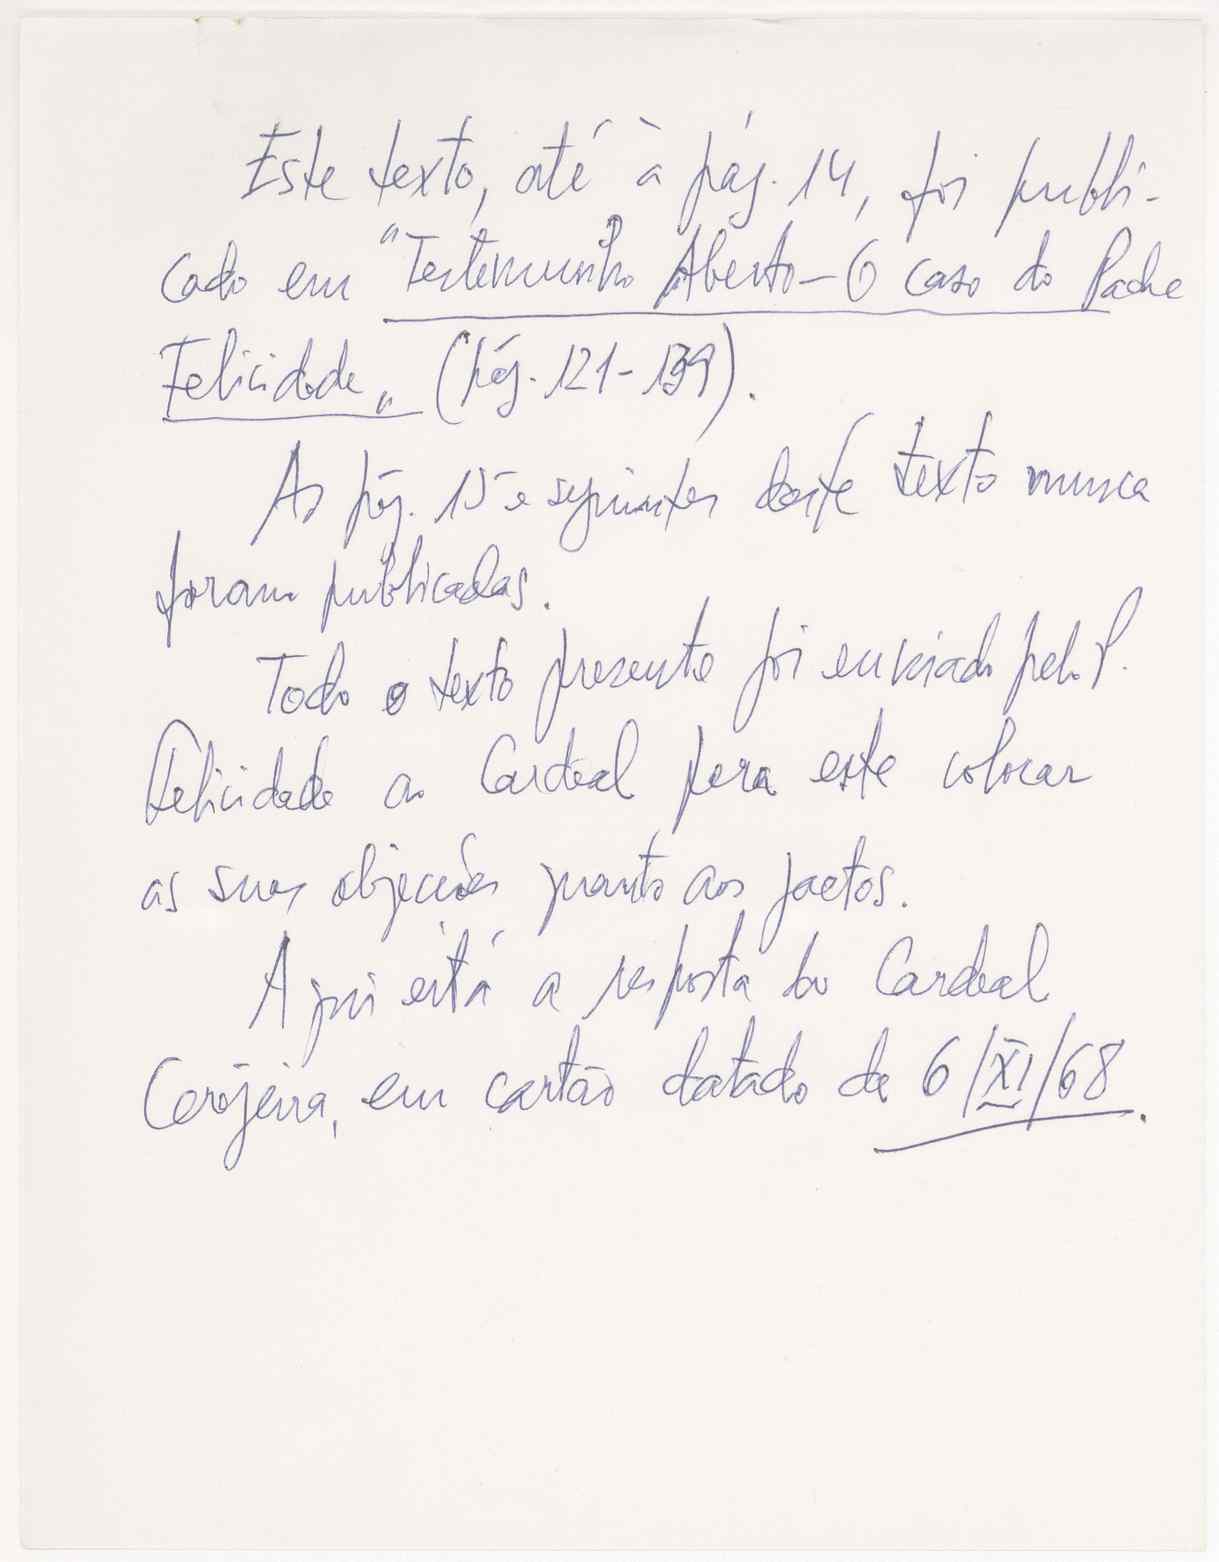 Este texto, até à pág. 14, foi publi-
cado em "Testemunho Aberto - O caso do Padre
Felicidade" (pág. 121-139).
As pág. 15 e seguintes deste texto nunca
foram publicadas.
Todo o texto presente foi enviado pelo P.
Felicidade ao Cardeal para este colocar
as suas objecções quanto aos factos.
Aqui está a resposta do Cardeal
Cerejeira, em cartão datado de 6/XI/68.